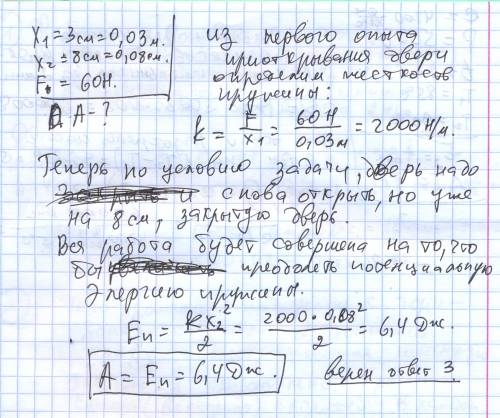 X₁ = 3см = 0,03м.
X₂ = 8см = 0,08см.
F. = 60Н.
A - ?
Из первого опыта
приоткрывания двери
определим жесткость
пружины:
k = F/X₁ = 60Н/0,03м = 2000Н/м.
Теперь по условию задачи, дверь надо
и снова открыть, но уже
на 8см, закрытую дверь.
Вся работа будет совершена на то, что
бы преодолеть потенциальную
энергию пружины.
Eп = kX₂²/2 = 2000·0,08²/2 = 6,4 Дж.
A = Eп = 6,4 Дж.
верен ответ 3